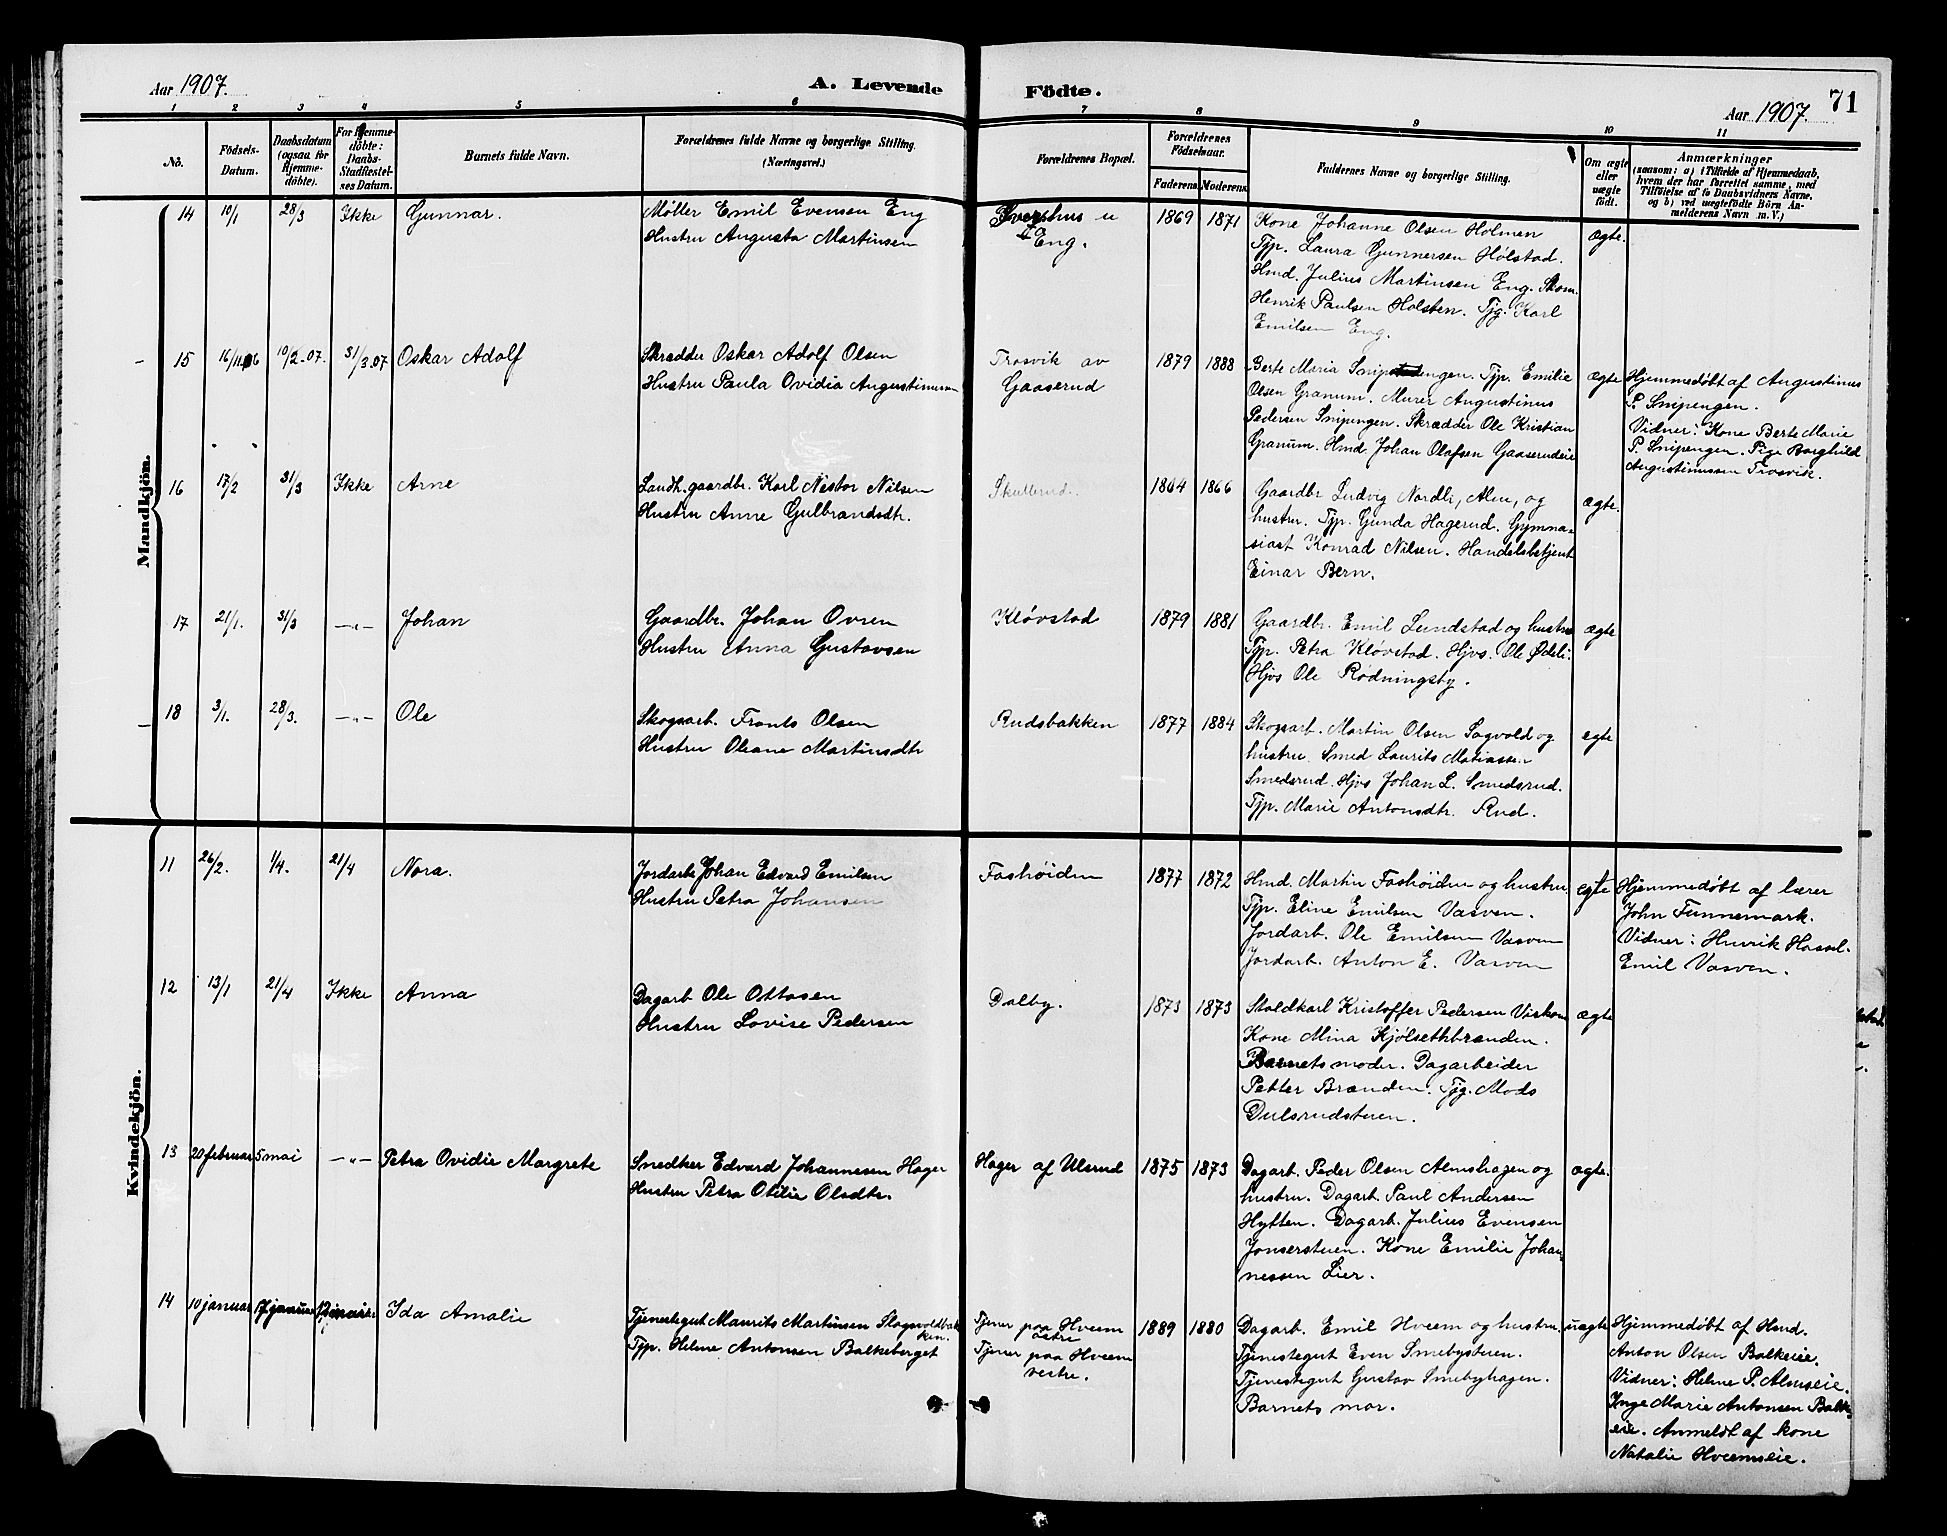 Aar 1907.
A. Levende
Födte.
Aar 1907.
71
1 2 3 4 5 6 7 8 9 10 11
No.
Födsels-
Datum.
Daabsdatum
(ogsaa for
Hjemme-
döbte).
For Hjemme-
döbte:
Daabs-
Stadfæstel-
ses Datum.
Barnets fulde Navn.
Forældrenes fulde Navne og borgerlige Stilling.
(Næringsvei.)
Forældrenes Bopæl.
Forældrenes
Födselsaar.
Faderens Moderens
Faddernes Navne og borgerlig Stilling.
Om ægte
eller
uægte
födt.
Anmærkninger
(saasom: a) i Tilfælde af Hjemmedaab,
hvem der har forrettet samme, med
Tilföielse af to Daabsvidners Navne,
og b) ved uægtefödte Börn An-
melderens Navn m. V.)
Mandkjön.
14 10/1 28/3 Ikke Gunnar.
Møller Emil Evensen Eng
Hustru Augusta Martinsen
Svershus u
Eng.
1869 1871
Kone Johanne Olsen Holmen
Tjp. Laura Gunnersen Hølstad.
Hmd. Julius Martinsen Eng. Skom.
Henrik Paulsen Holsten. Tjg. Karl
Emilsen Eng.
Ægte.
15 16/11.06 10/2.07. 31/3.07 Oskar Adolf
Skrædder Oskar Adolf Olsen
Hustru Paula Ovidia Augustinussen
Trosvik av
Gaaserud
1879 1888
Berte Maria Snipengen. Tjp. Emilie
Olsen Granum. Murer Augustinus
Pedersen Snipengen. Skrædder Ole Kristian
Granum. Hmd. Johan Olafsen Gaaserudeie
ægte
Hjemmedøbt af Augustinus
P. Snipengen.
Vidner: Kone Berte Marie
P. Snipengen. Pige Borghild
Augustinussen Trosvik.
16 17/2 31/3 Ikke Arne
Landh. gaardbr. Karl Nestor Nilsen
Hustru Anne Gulbrandsdtr.
Skullerud.
1864 1866
Gaardbr Ludvig Nordli, Alm, og
hustru. Tjp. Gunda Hagerud. Gymna-
siast Konrad Nilsen. Handelsbetjent
Einar Bern.
ægte.
17 21/1. 31/3 —"— Johan
Gaardbr. Johan Ovren
Hustru Anna Gustavsen
Kløvstad
1879 1881
Gaardbr. Emil Lundstad og hustru
Tjp. Petra Kløvstad. Hjvs. Ole Ødeli.
Hjvs Ole Rødningsby.
ægte
18 3/1. 28/3. —"— Ole
Skogsarb. Frants Olsen
Hustru Oleane Martinsdtr
Rudsbakken
1877 1884
Skogsarb. Martin Olsen Sagvold og
hustru. Smed Laurits Matiassen
Smedsrud. Hjvs Johan L. Smedsrud.
Tjp. Marie Antonsdtr. Rud.
ægte
Kvindekjön.
11 26/2. 1/4. 21/4 Nora.
Jordarb. Johan Edvard Emilsen
Hustru Petra Johansen
Foshøiden
1877 1872
Hmd. Martin Foshøiden og hustru
Tjp. Eline Emilsen Vasven.
Jordarb. Ole Emilsen Vasven
Jordarb. Anton E. Vasven
ægte
Hjemmedøbt af lærer
John Funnemark.
Vidner: Henrik Hassel.
Emil Vasven.
12 13/1 21/4 Ikke Anna
Dagarb Ole Ottosen
Hustru Lovise Pedersen
Dalby.
1873 1873
Staldkarl Kristoffer Pedersen
Kone Mina Kjølsethbrænden.
Barnets moder. Dagarbeider
Petter Brænden. Tjg. Mads
Dulsrudstuen.
ægte
13 20 februar 5 mai —"— Petra Ovidie Margrete
Snedker Edvard Johannesen Hager
Hustru Petra Otilie Olsdtr.
Hager af Ulsrud
1875 1873
Dagarb. Peder Olsen Almshagen og
hustru. Dagarb. Paul Andersen
Hytten. Dagarb. Julius Evensen
Jonserstuen. Kone Emilie Johan-
nessen Lier.
ægte.
14 10 januar 17 januar Ida Amalie
Tjenestegut Maurits Martinsen Slagvoldbak-
ken.
Tjp. Helene Antonsen Balkeberget
Tjener paa Hveem
østre
Tjener paa Hveem
vestre.
1889 1880
Dagarb. Emil Hveem og hustru.
Tjenestegut Even Smebystuen.
Tjenestegut Gustav Smebyhagen.
Barnets mor.
uægte
Hjemmedøbt af Hmd.
Anton Olsen Balkeeie.
Vidner: Helene P. Almseie.
Inge Marie Antonsen Balke-
eie. Anmeldt af kone
Natalie Hveemseie.